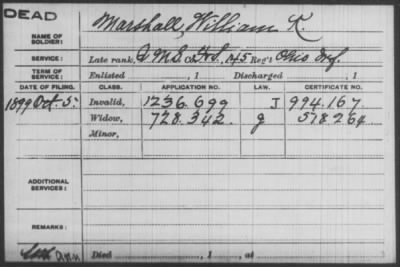 DEAD
NAME OF SOLDIER: Marshall, William K.
SERVICE: Late rank, Q M S. & F S, 145 Reg't Ohio Inf.
TERM OF SERVICE: Enlisted , 1 Discharged , 1
DATE OF FILING. CLASS. APPLICATION NO. LAW. CERTIFICATE NO.
1899 Oct. 5. Invalid, 1236.699 J 994.167.
Widow, 728.342. g 518264
Minor,
ADDITIONAL SERVICES:
REMARKS:
Died , 1 , at